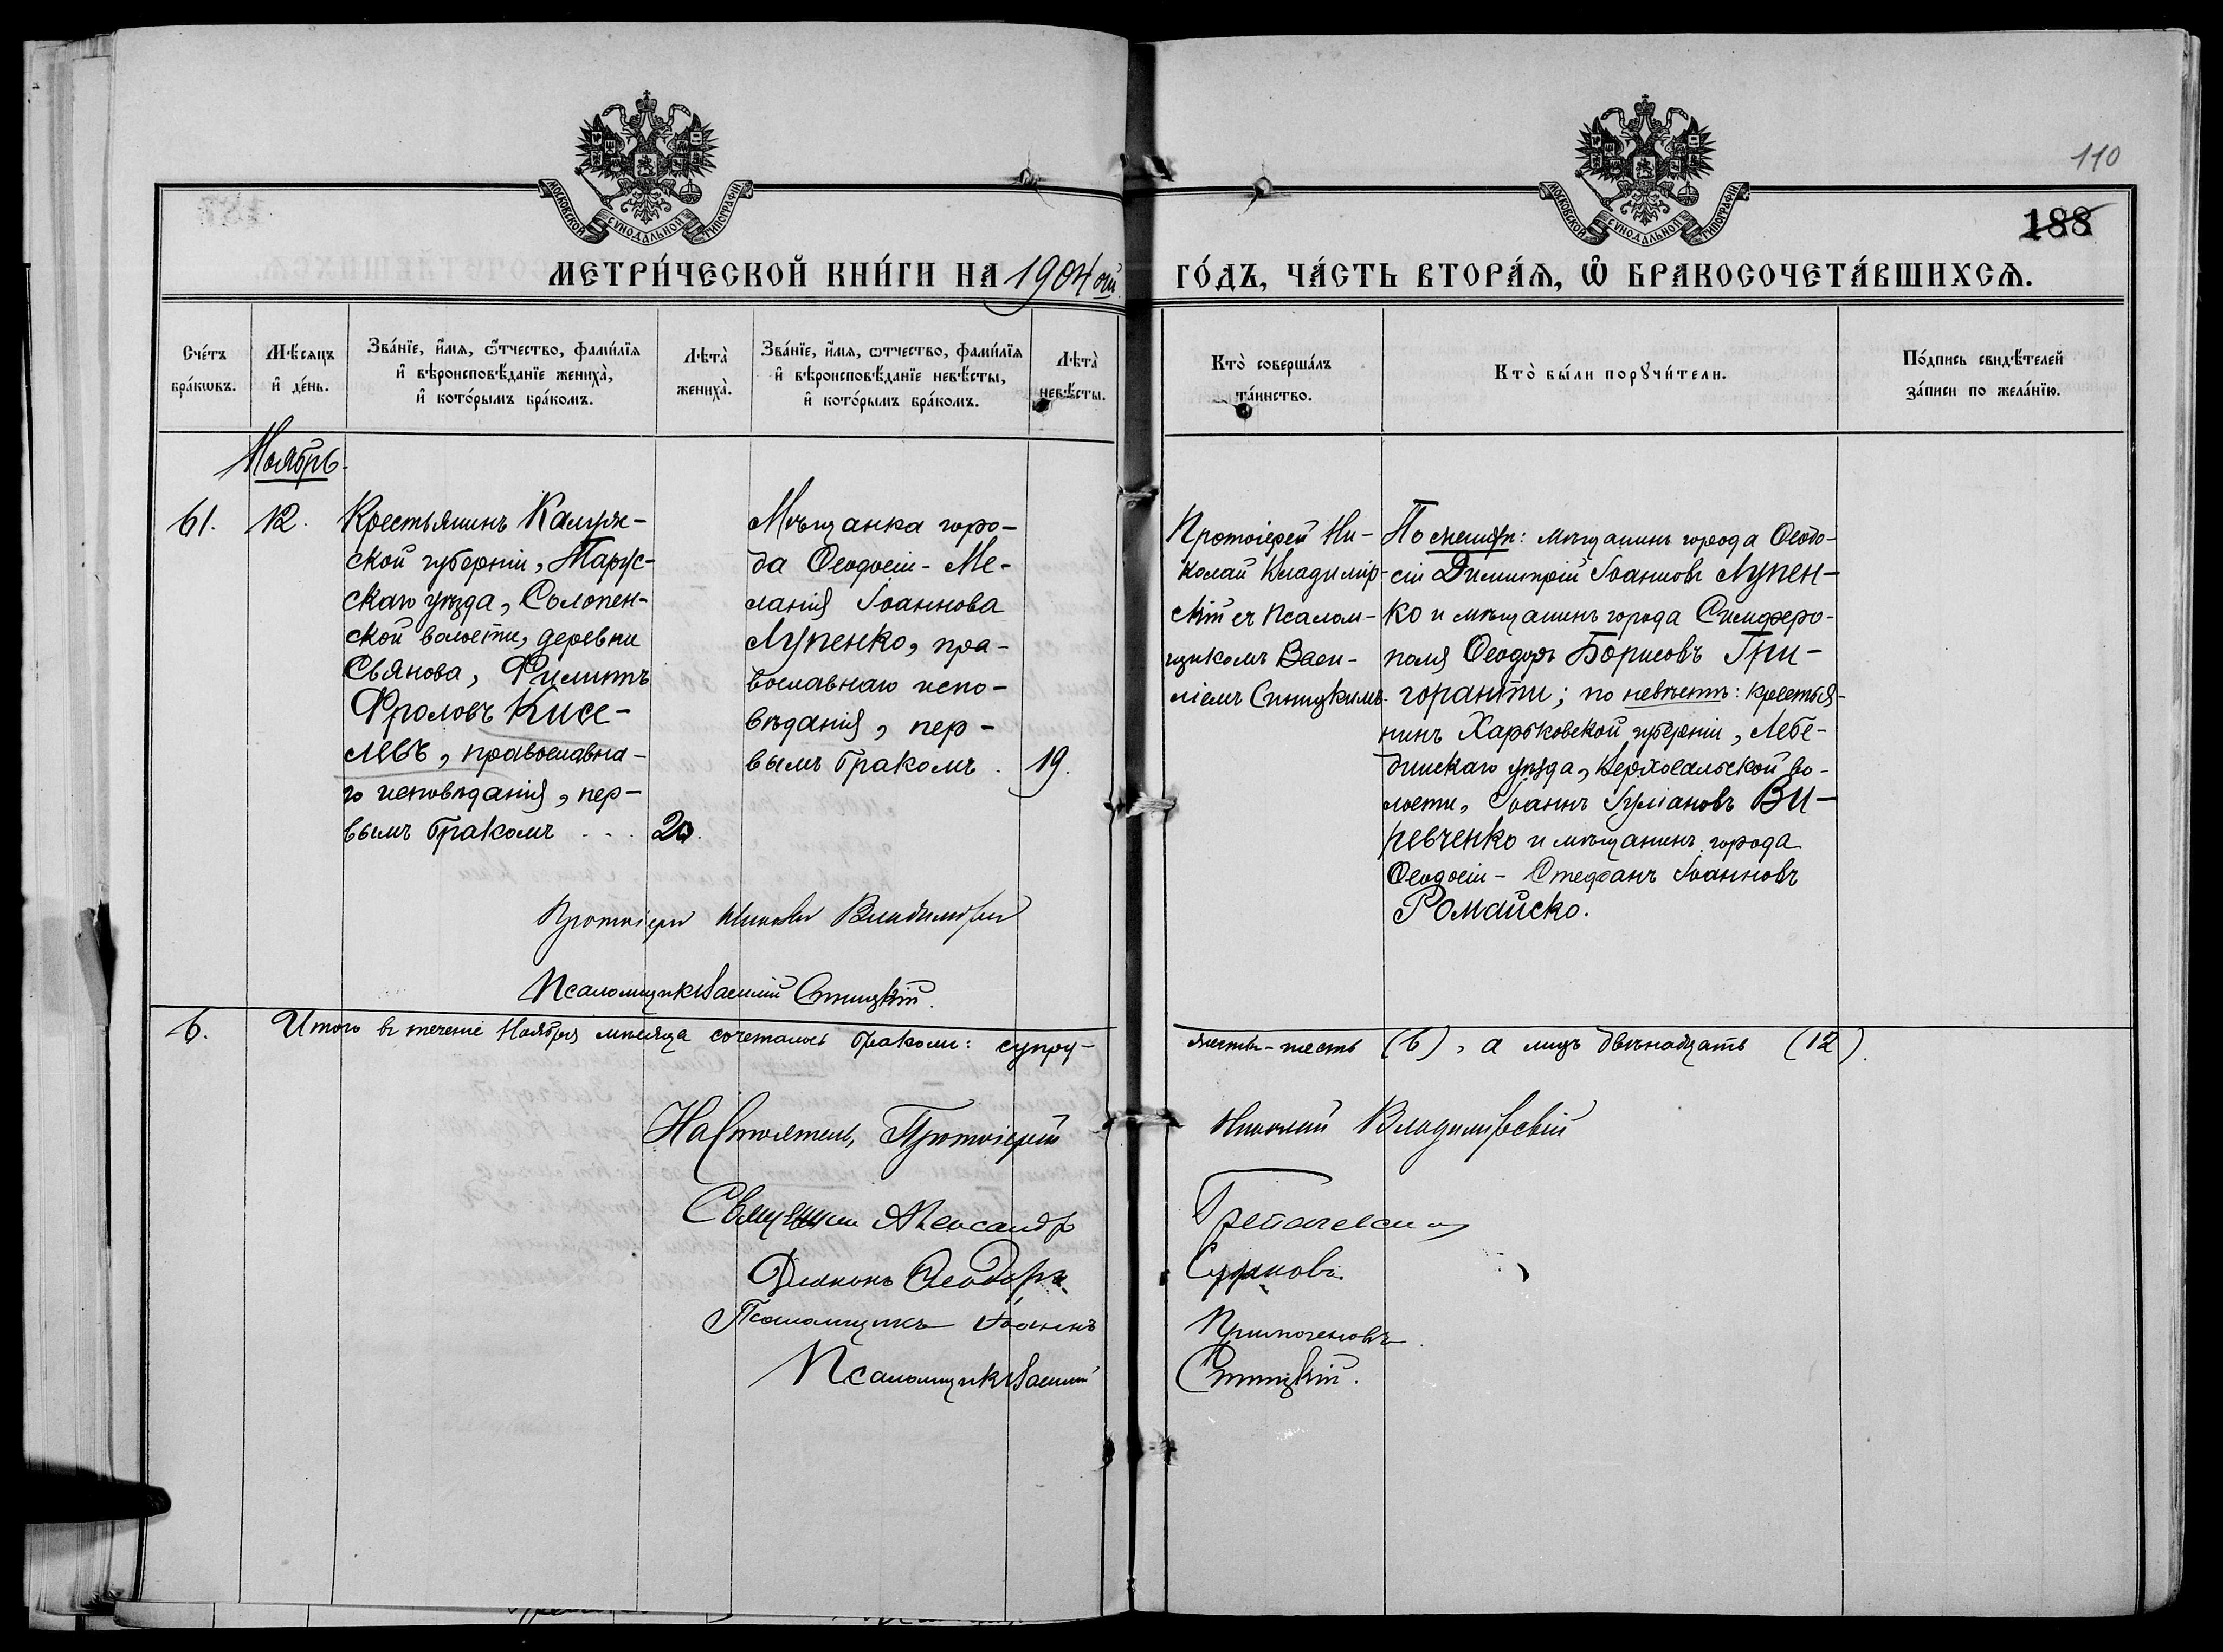 110
188
МОСКОВСКОЙ СѴНОДАЛЬНОЙ ТИПОГРАФІИ
МОСКОВСКОЙ СѴНОДАЛЬНОЙ ТИПОГРАФІИ
МЕТРИ́ЧЕСКОЙ КНИ́ГИ НА 1904 ый
ГО́ДЪ, ЧА́СТЬ ВТОРА́Ѧ, Ѡ҆ БРАКОСОЧЕТА́ВШИХСѦ.
Сче́тъ
бра́кѡвъ.
Мѣ́сяцъ
и҆ де́нь.
Зва́нїе, и҆́мѧ, ѻ҆́тчество, фами́лїѧ
и҆ вѣроисповѣ́данїе жениха̀,
и҆ кото́рымъ бра́комъ.
Лѣта̀
жениха̀.
Зва́нїе, и҆́мѧ, ѻтчество, фами́лїѧ
и҆ вѣроисповѣ́данїе невѣ́сты,
и҆ кото́рымъ бра́комъ.
Лѣта̀
невѣ́сты.
Кто̀ соверша́лъ
та́инство.
Кто̀ бы́ли порꙋчи́тели.
По́дпись свидѣ́телей
за́писи по жела́нїю.
Ноябрь.
61.
12.
Крестьянинъ Калуж-
ской губерніи, Тарус-
скаго уѣзда, Солопен-
ской волости, деревни
Свянова, Филиппъ
Фроловъ Кисе-
левъ, православна-
го исповѣданія, пер-
вымъ бракомъ . . .
20.
Мѣщанка горо-
да Ѳеодосіи - Ме-
ланія Іоаннова
Лупенко, пра-
вославнаго испо-
вѣданія, пер-
вымъ бракомъ .
19.
Протоіерей Ни-
колай Владимір-
скій съ псалом-
щикомъ Васи-
ліемъ Синицкимъ.
По женихѣ: мѣщанинъ города Ѳеодо-
сіи Димитрій Іоанновъ Лупен-
ко и мѣщанинъ города Симферо-
поля Ѳеодоръ Борисовъ Гри-
горантти; по невѣстѣ: крестья-
нинъ Харьковской губерніи, Лебе-
динскаго уѣзда, Верхосальской во-
лости, Іоаннъ Іуліановъ Ви-
ревченко и мѣщанинъ города
Ѳеодосіи - Стефанъ Іоанновъ
Романско.
Протоіерей Николай Владимірскій
Псаломщикъ Василій Синицкій.
6.
Итого въ теченіе Ноября мѣсяца сочеталось бракомъ: супру-
жествъ - шесть (6), а лицъ двѣнадцать (12).
Настоятель, Протоіерей
Николай Владимірскій
Священникъ Александръ
Діаконъ Ѳеодоръ
Псаломщикъ Іоаннъ
Псаломщикъ Василій
Синицкій.